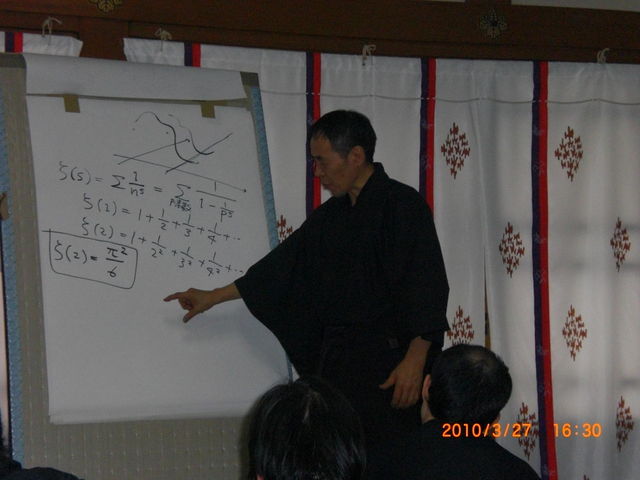 ζ(s) = Σ 1/n^s = Σ 1/(1 - 1/p^s)
ζ(1) = 1 + 1/2 + 1/3 + 1/4 + ...
ζ(2) = 1 + 1/2² + 1/3² + 1/4² + ...
ζ(2) = π²/6
2010/3/27 16:30